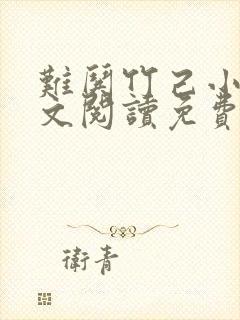 難鬪竹己小
文閱讀免費
衛青